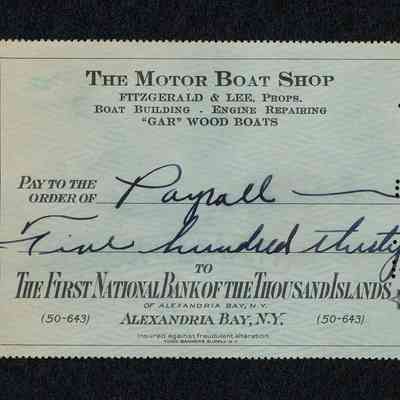 THE MOTOR BOAT SHOP
FITZGERALD & LEE, PROPS.
BOAT BUILDING - ENGINE REPAIRING
"GAR" WOOD BOATS
PAY TO THE
ORDER OF Payroll
Five hundred thirty
TO
THE FIRST NATIONAL BANK OF THE THOUSAND ISLANDS
OF ALEXANDRIA BAY, N.Y.
(50-643) ALEXANDRIA BAY, N.Y. (50-643)
Insured against fraudulent alteration
TODD BANKERS SUPPLY N.Y.